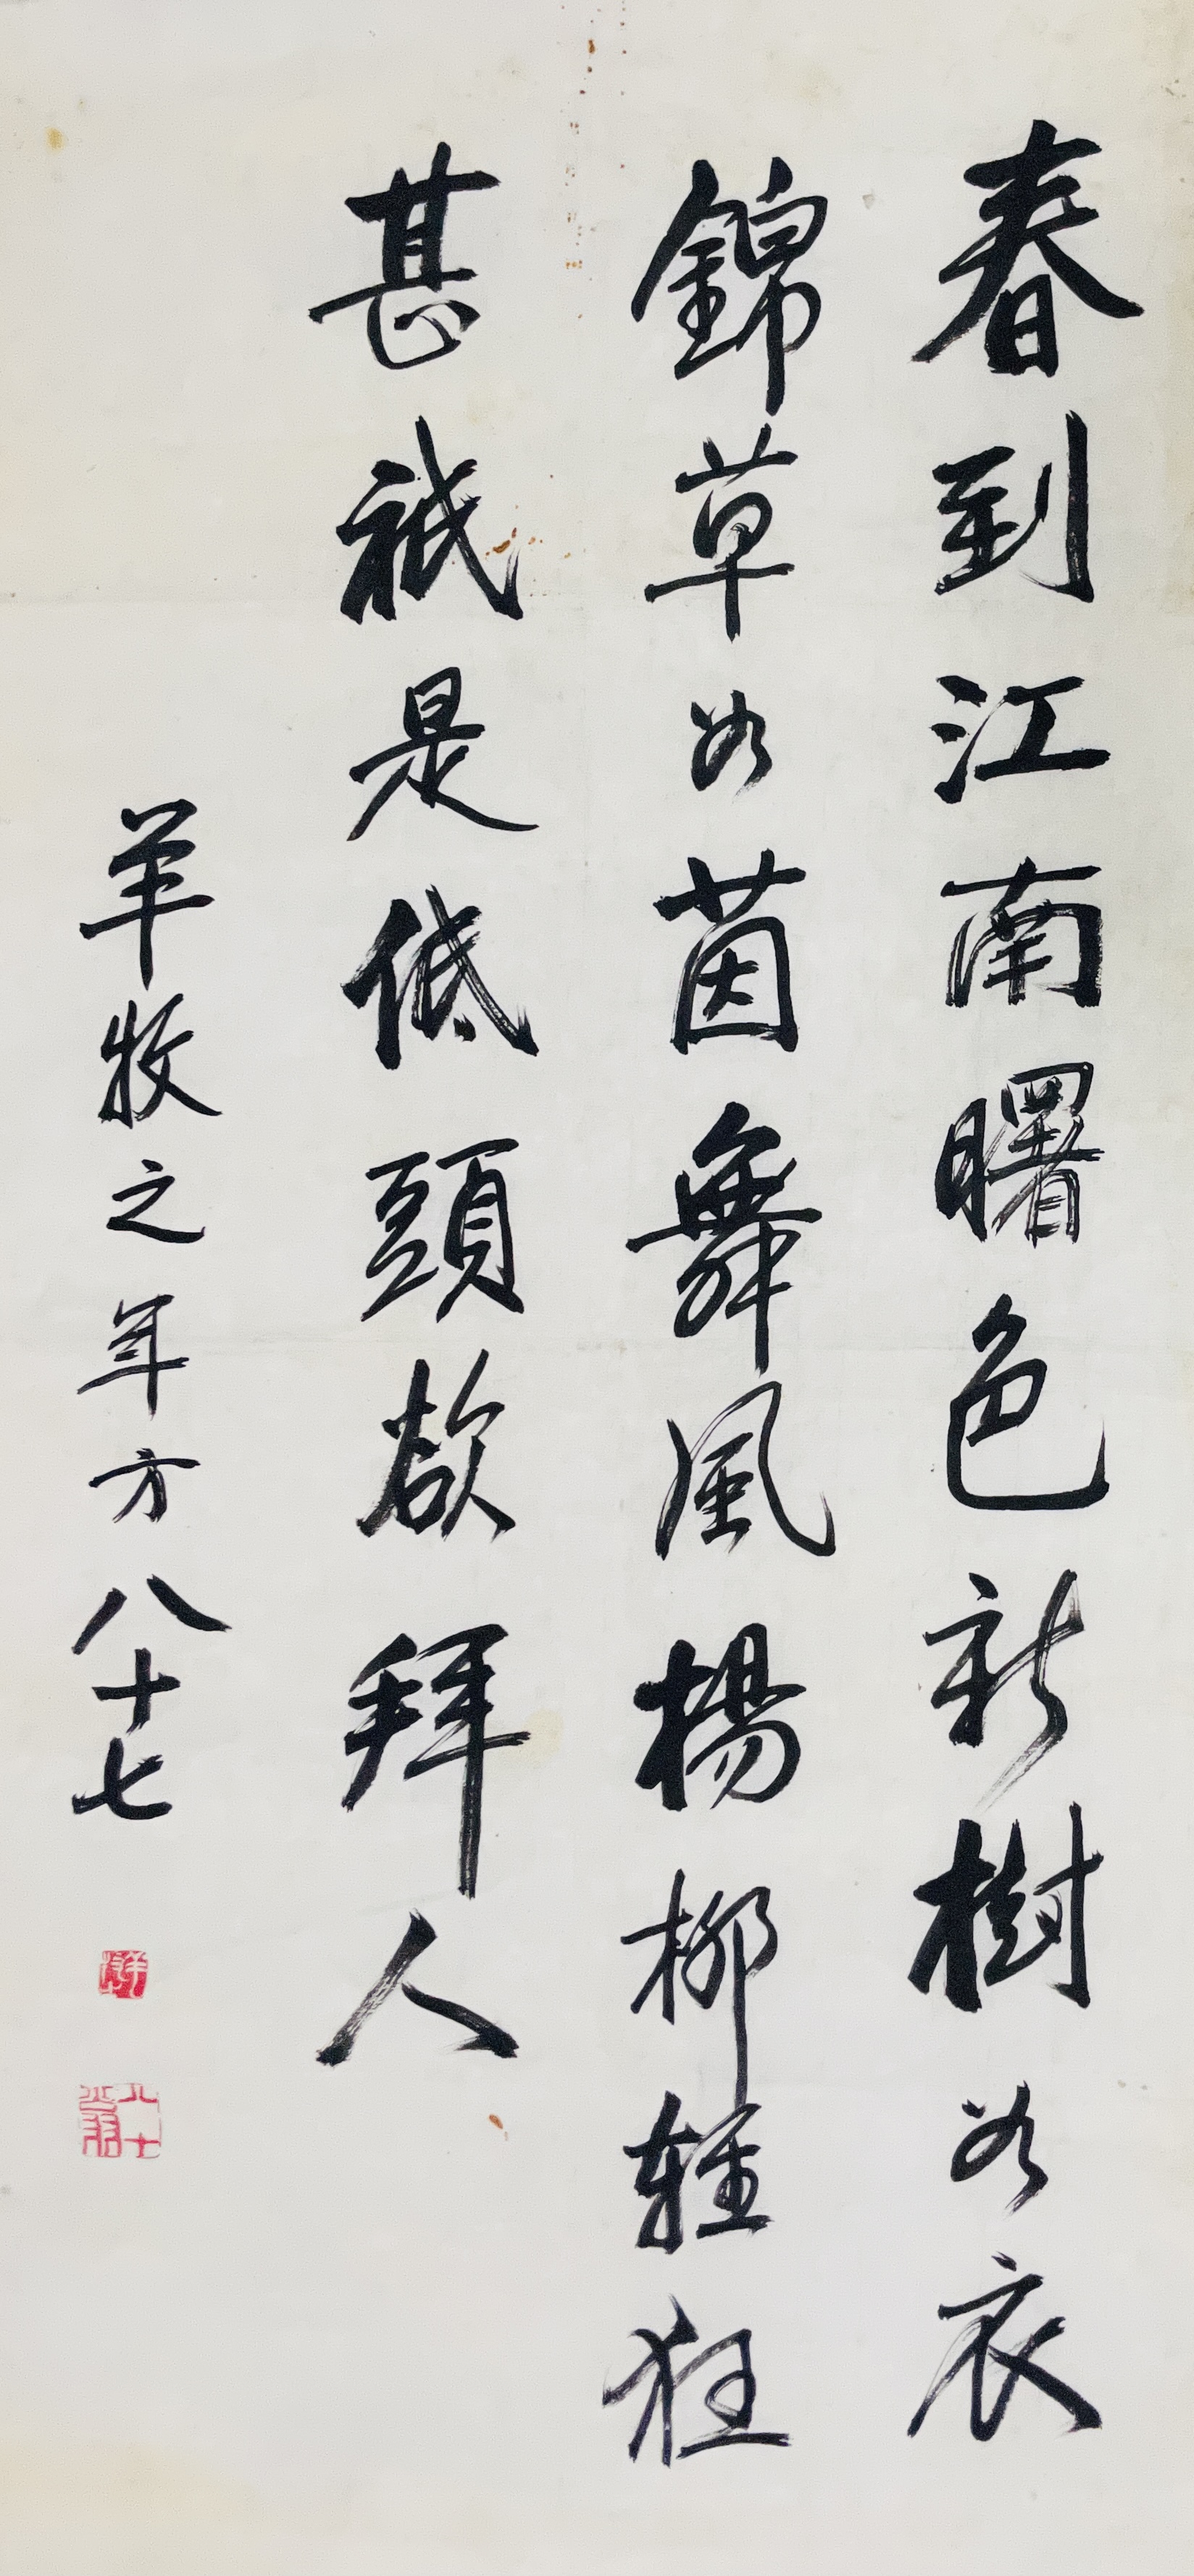 春到江南曙色新樹如衣
錦草如茵舞風楊柳輕狂
甚祇是低頭欲拜人
羊牧之年方八十七